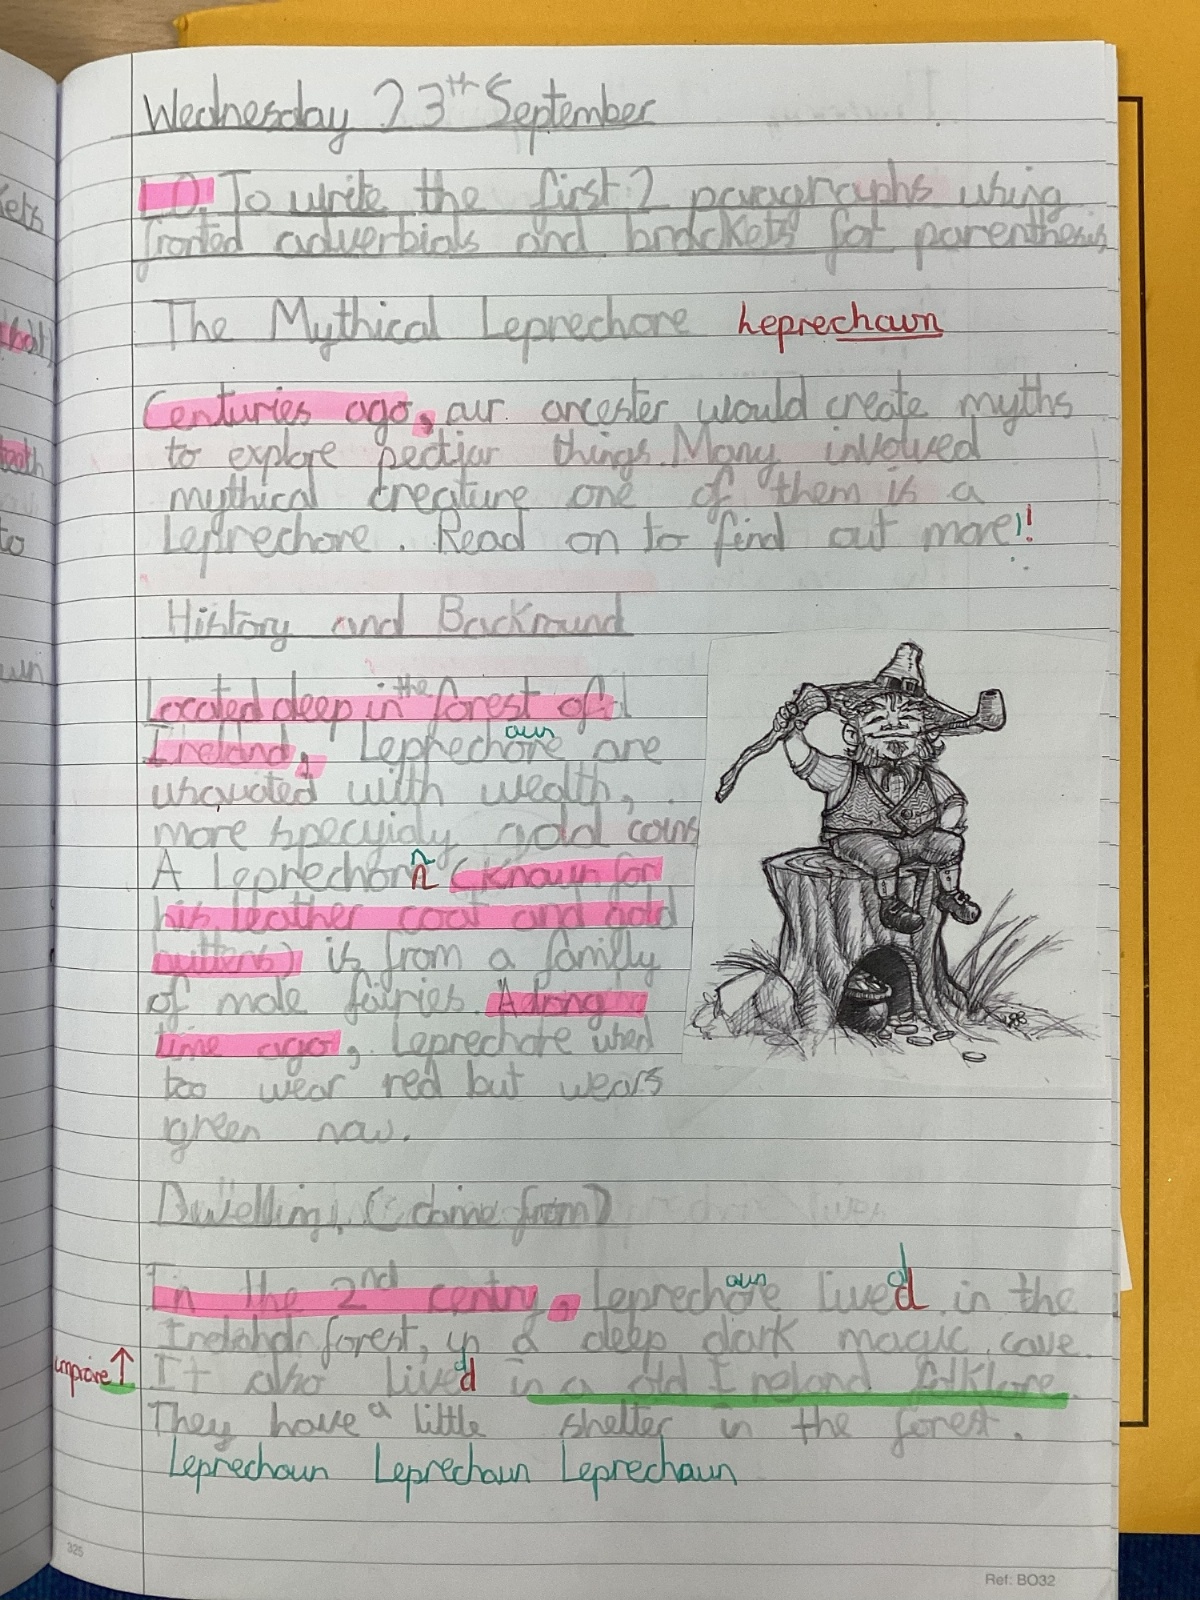 Wednesday 23th September
LO. To write the first 2 paragraphs using
fronted adverbials and brackets for parenthesis
The Mythical Leprechore Leprechaun
Centuries ago, our ancester would create myths
to explore pectiar things. Many involved
mythical creature one of them is a
Leprechore. Read on to find out more!!
History and Backround
Located deep in the forest of
Ireland, Leprechore aun are
with wealth,
more specyialy gold coins
A Leprechorn n (known for
his leather coat and gold
buttens) is from a familly
of male fairies. A long
time ago, Leprechore used
too wear red but wears
green now.
Dwelling, (come from)
In the 2nd centry, Leprechore aun lived d in the
forest, in a deep dark magic cave.
improve ↑ It also lived d in a old Ireland folklore.
They have a little shelter in the forest.
Leprechaun Leprechaun Leprechaun
325
Ref: BO32
ets
to